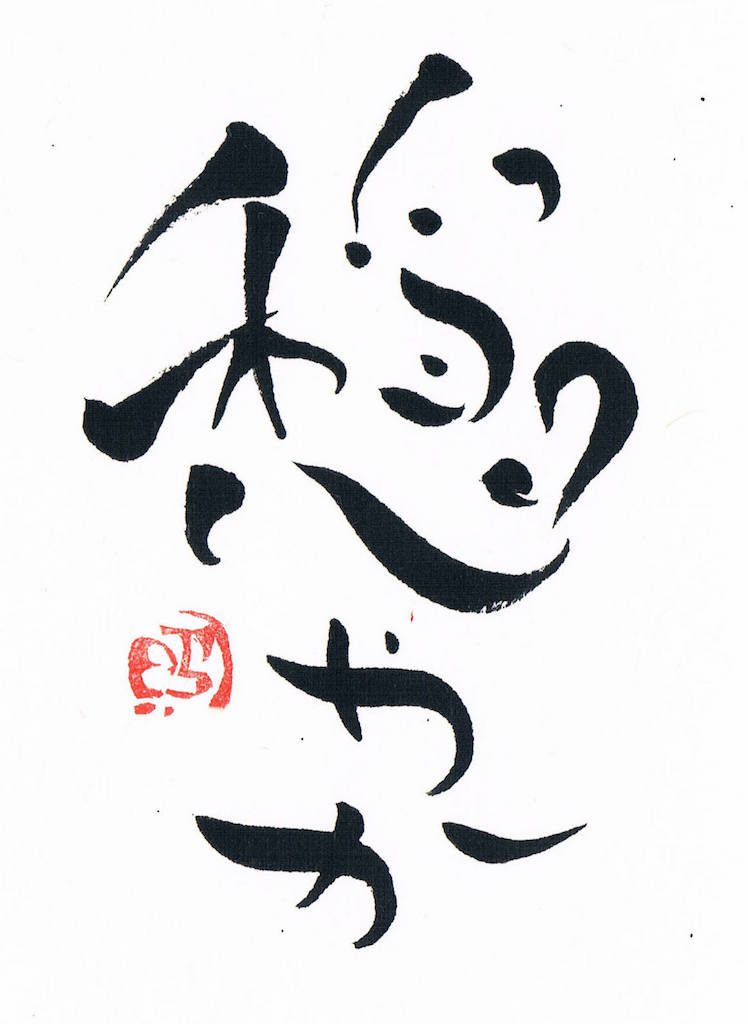 穏やか